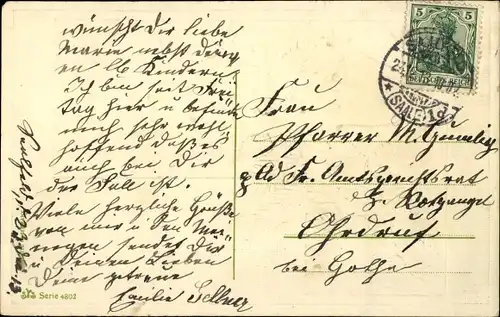 wünscht dir liebe
Marie nebst deinen
lb Kindern.
Ich bin seit Frei-
tag hier u befinde
mich sehr wohl,
hoffend daß es
auch bei Dir
der Fall ist.
Viele herzliche Grüße
von mir u den Mei-
nigen sendet Dir
u Deinen Lieben
Deine getreue
Emilie
Serie 4802
5 5
DEUTSCHES REICH
(SAALE) 1
Frau
Pfarrer M.
Ad Fr. Amtsgerichtsrat
Ohrdruf
bei Gotha